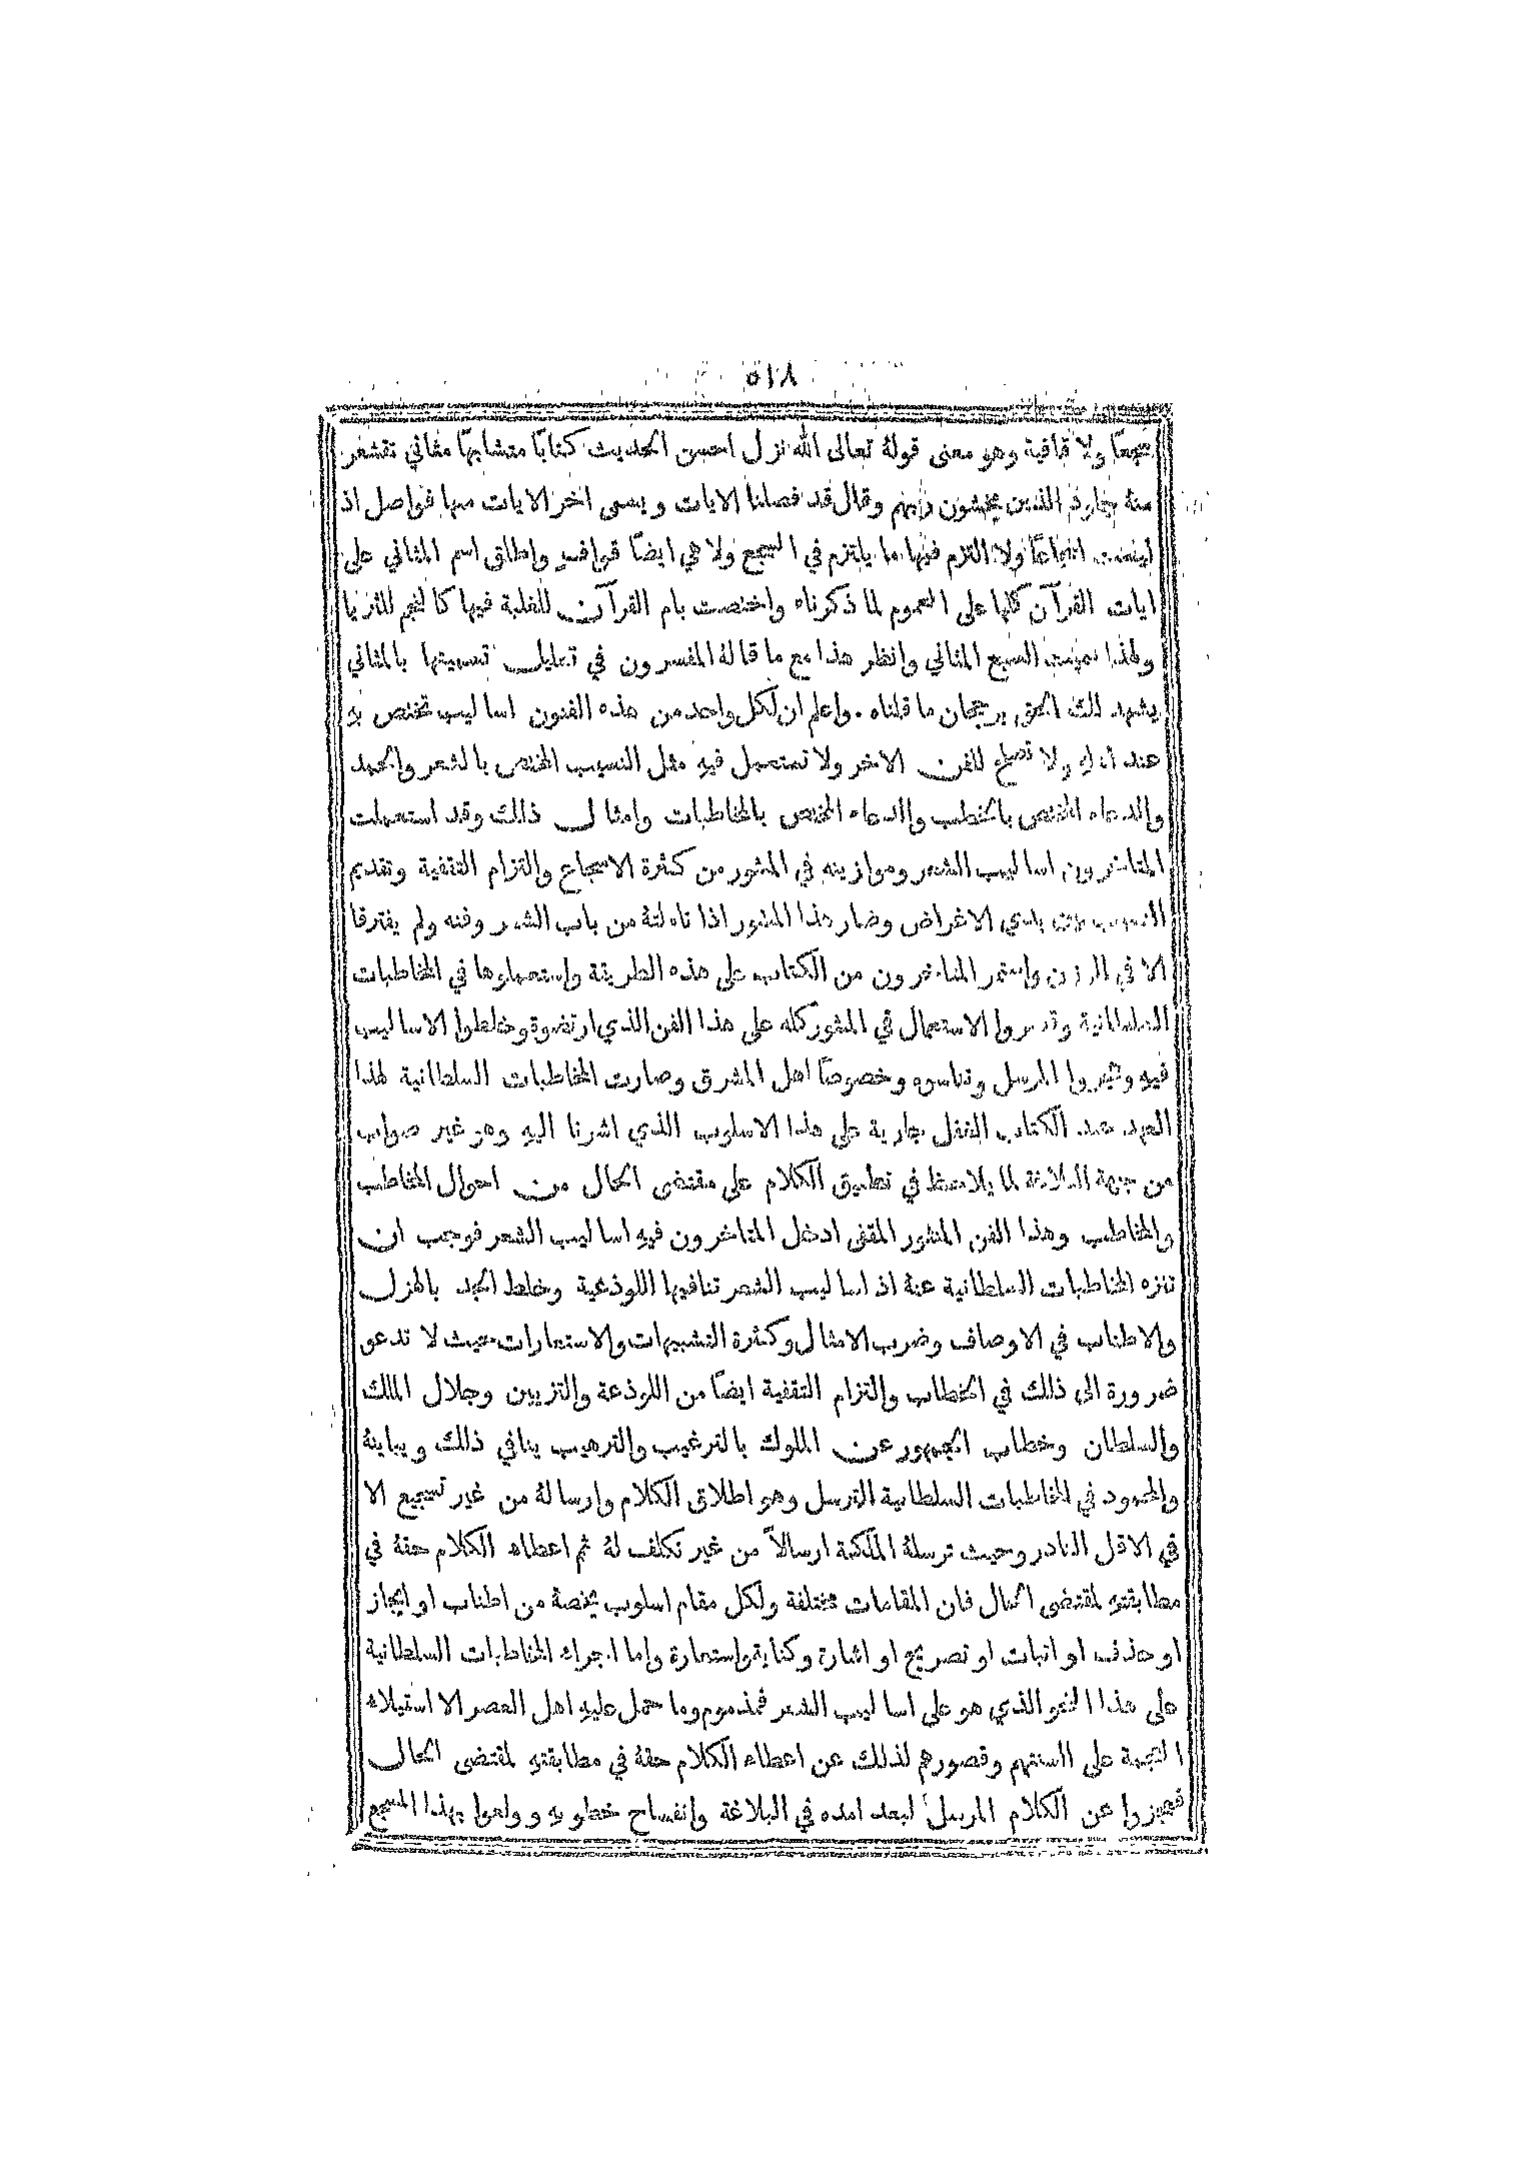 ٥١٨
سجعًا ولا قافية وهو معنى قولهُ تعالى الله نزل احسن الحديث كتابًا متشابهًا مثاني تقشعر
منهُ جلود الذين يخشون ربهم وقال قد فصلنا الايات ويسمى اخر الايات منها فواصل اذ
ليست اسجاعًا ولا التزم فيها ما يلتزم في السجع ولا هي ايضًا قوافٍ واطلق اسم المثاني على
ايات القرآن كلها على العموم لما ذكرناه واختصت بام القرآن للغلبة فيها كالنجم للثريا
ولهذا سميت السبع المثاني وانظر هذا مع ما قالهُ المفسرون في تعليل تسميتها بالمثاني
يشهد لك الحق برجحان ما قلناه . واعلم ان لكل واحد من هذه الفنون اساليب تختص بهِ
عند اهلهِ ولا تصلح للفن الاخر ولا تستعمل فيهِ مثل النسيب المختص بالشعر والحمد
والدعاء المختص بالخطب والدعاء المختص بالمخاطبات وامثال ذلك وقد استعملت
المتاخرون اساليب الشعر وموازينه في المنثور من كثرة الاسجاع والتزام التقفية وتقديم
النسيب بين يدي الاغراض وصار هذا المنثور اذا تاملتهُ من باب الشعر وفنه ولم يفترقا
الا في الوزن واستمر المتاخرون من الكتاب على هذه الطريقة واستعملوها في المخاطبات
السلطانية وقصروا الاستعمال في المنثور كله على هذا الفن الذي ارتضوهُ وخلطوا الاساليب
فيهِ وهجروا المرسل وتناسوه وخصوصًا اهل المشرق وصارت المخاطبات السلطانية لهذا
العهد عند الكتاب الغفل جارية على هذا الاسلوب الذي اشرنا اليهِ وهو غير صواب
من جهة البلاغة لما يلاحظ في تطبيق الكلام على مقتضى الحال من احوال المخاطب
والمخاطب وهذا الفن المنثور المقفى ادخل المتاخرون فيهِ اساليب الشعر فوجب ان
تنزه المخاطبات السلطانية عنهُ اذ اساليب الشعر تنافيها اللوذعية وخلط الجد بالهزل
والاطناب في الاوصاف وضرب الامثال وكثرة التشبيهات والاستعارات حيث لا تدعو
ضرورة الى ذلك في الخطاب والتزام التقفية ايضًا من اللوذعة والتزيين وجلال الملك
والسلطان وخطاب الجمهور عن الملوك بالترغيب والترهيب ينافي ذلك ويباينهُ
والمحمود في المخاطبات السلطانية الترسل وهو اطلاق الكلام وارسالهُ من غير تسجيع الا
في الاقل النادر وحيث ترسلهُ الملكة ارسالاً من غير تكلف لهُ ثم اعطاء الكلام حقهُ في
مطابقتهِ لمقتضى الحال فان المقامات مختلفة ولكل مقام اسلوب يخصهُ من اطناب او ايجاز
او حذف او اثبات او تصريح او اشارة وكناية واستعارة واما اجراء المخاطبات السلطانية
على هذا النحو الذي هو على اساليب الشعر فمذموم وما حمل عليهِ اهل العصر الا استيلاء
العجمة على السنتهم وقصورهم لذلك عن اعطاء الكلام حقهُ في مطابقتهِ لمقتضى الحال
فعجزوا عن الكلام المرسل لبعد امده في البلاغة وانفساح خطوبهِ وولعوا بهذا المسجع